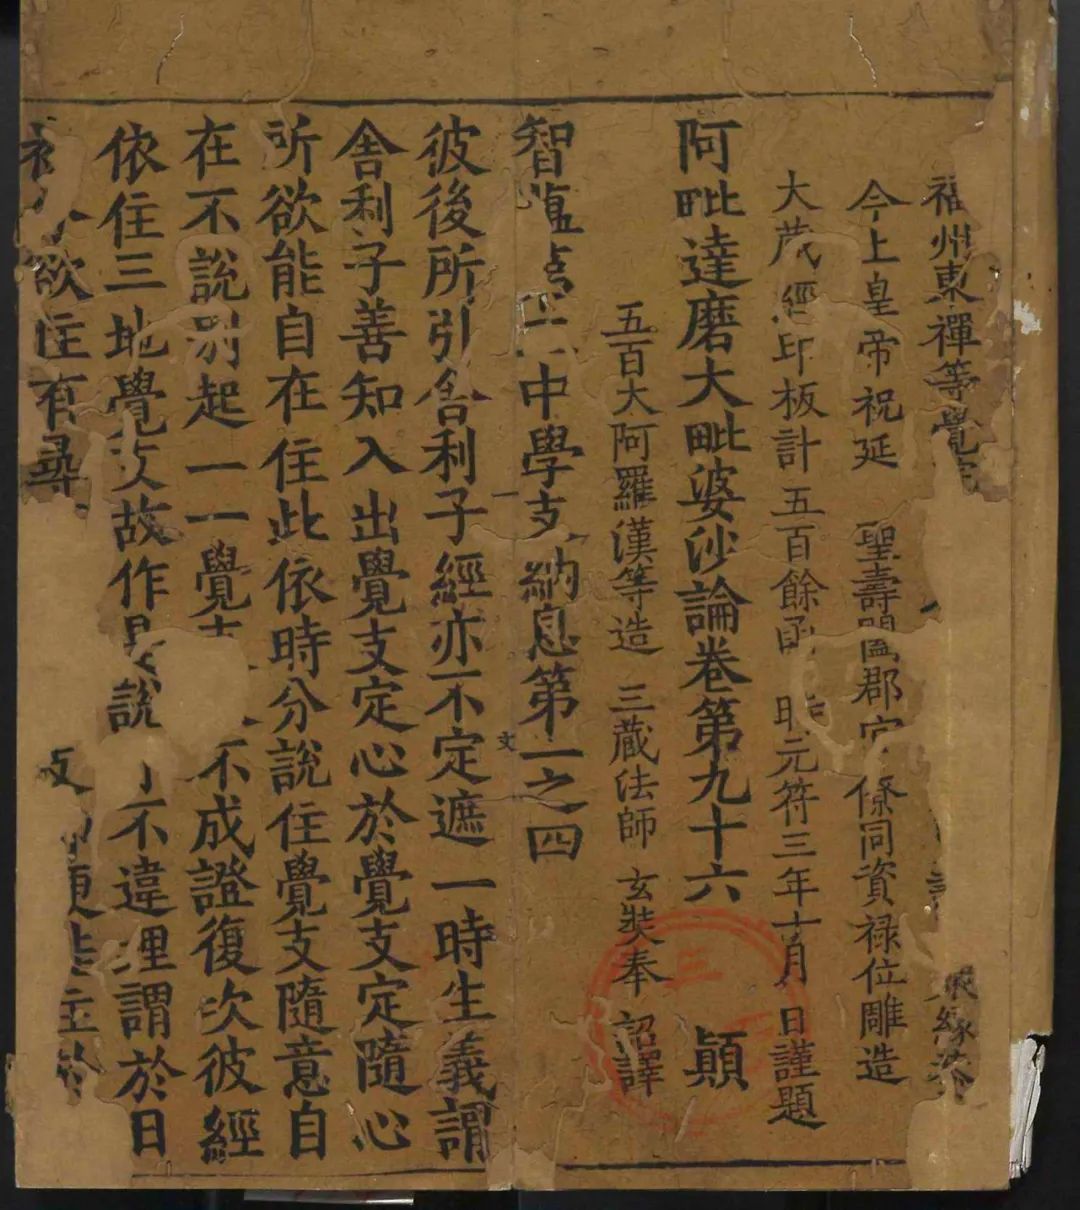 福州東禪等覺院 衆緣募
今上皇帝祝延 聖壽闔郡官僚同資祿位雕造
大藏經印板計五百餘函 時元符三年十月 日謹題
阿毗達磨大毗婆沙論卷第九十六 顛
五百大阿羅漢等造 三藏法師 玄奘奉 詔譯
智蘊第三中學支納息第一之四
彼後所引舍利子經亦不定遮一時生義謂
舍利子善知入出覺支定心於覺支定隨心
所欲能自在住此依時分說住覺支隨意自
在不說別起一一覺支 不成證復次彼經
依住三地覺支故作是說 不違理謂於日
初分欲住有尋 支 便 住於
三
文